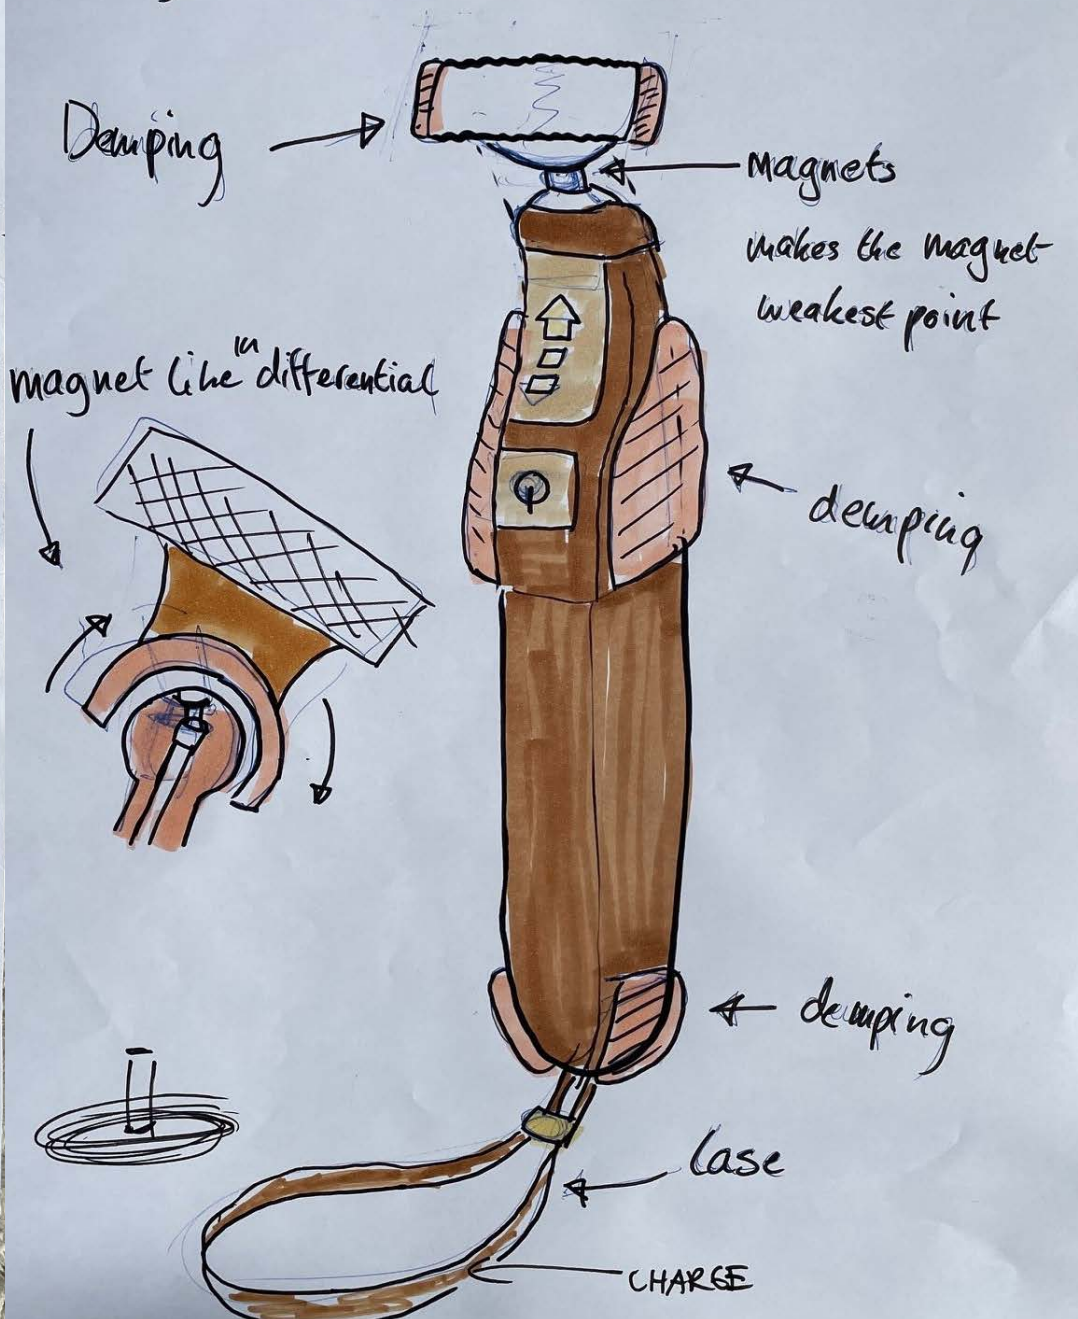 Damping
magnets
makes the magnet
weakest point
magnet like in differential
damping
damping
Case
CHARGE